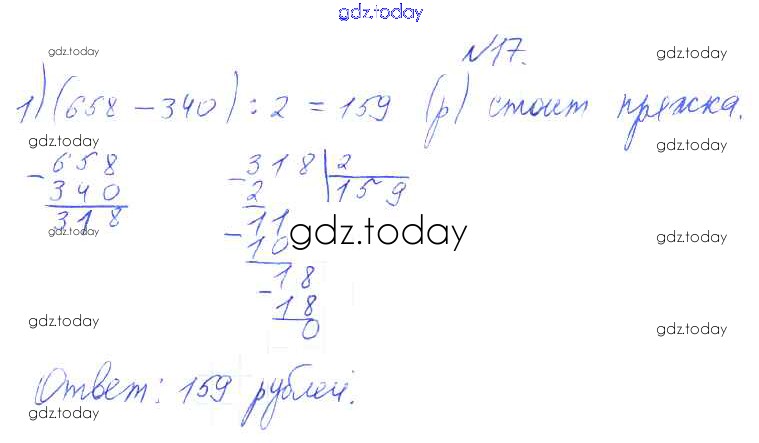 gdz.today
gdz.today
№17.
gdz.today
1) (658 - 340) : 2 = 159 (р) стоит пряжка.
gdz.today
gdz.today
- 658
340
318
- 318 | 2
2 159
- 11
10
- 18
18
0
gdz.today
gdz.today
gdz.today
gdz.today
gdz.today
Ответ: 159 рублей.
gdz.today
gdz.today